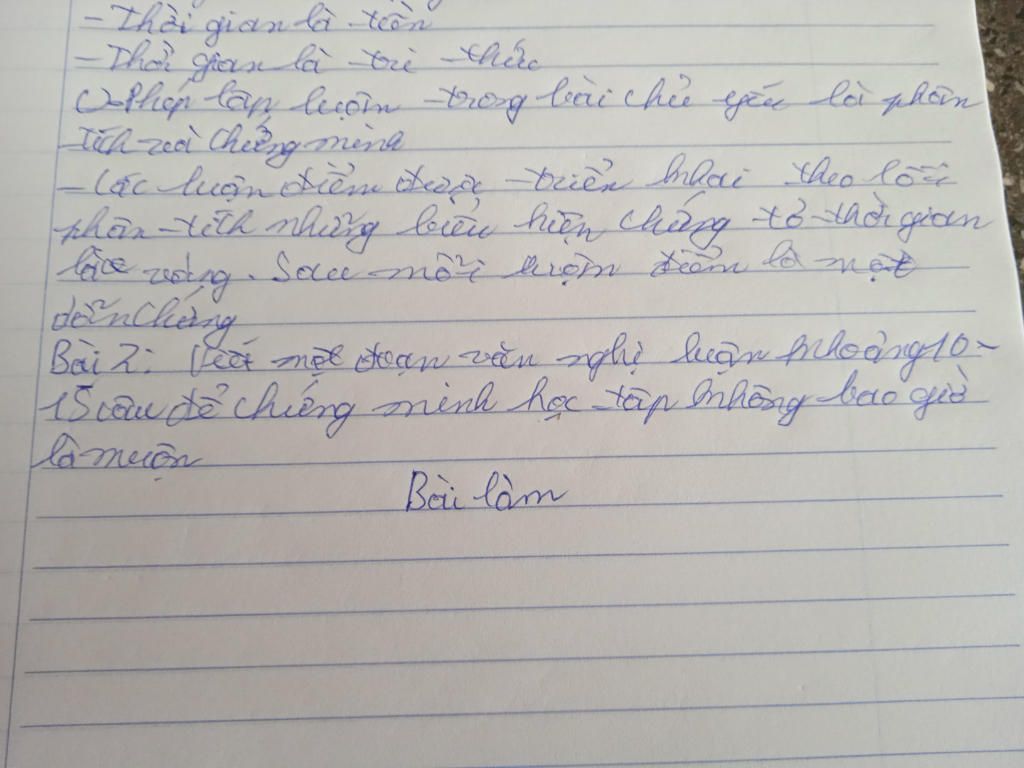 - Thời gian là tiền
- Thời gian là tri thức
c) Phép lập luận trong bài chủ yếu là phân
tích và chứng minh
- Các luận điểm được triển khai theo lối
phân tích những biểu hiện chứng tỏ thời gian
là vàng. Sau mỗi luận điểm là một
dẫn chứng
Bài 2: Viết một đoạn văn nghị luận khoảng 10-
15 câu để chứng minh học tập không bao giờ
là muộn
Bài làm